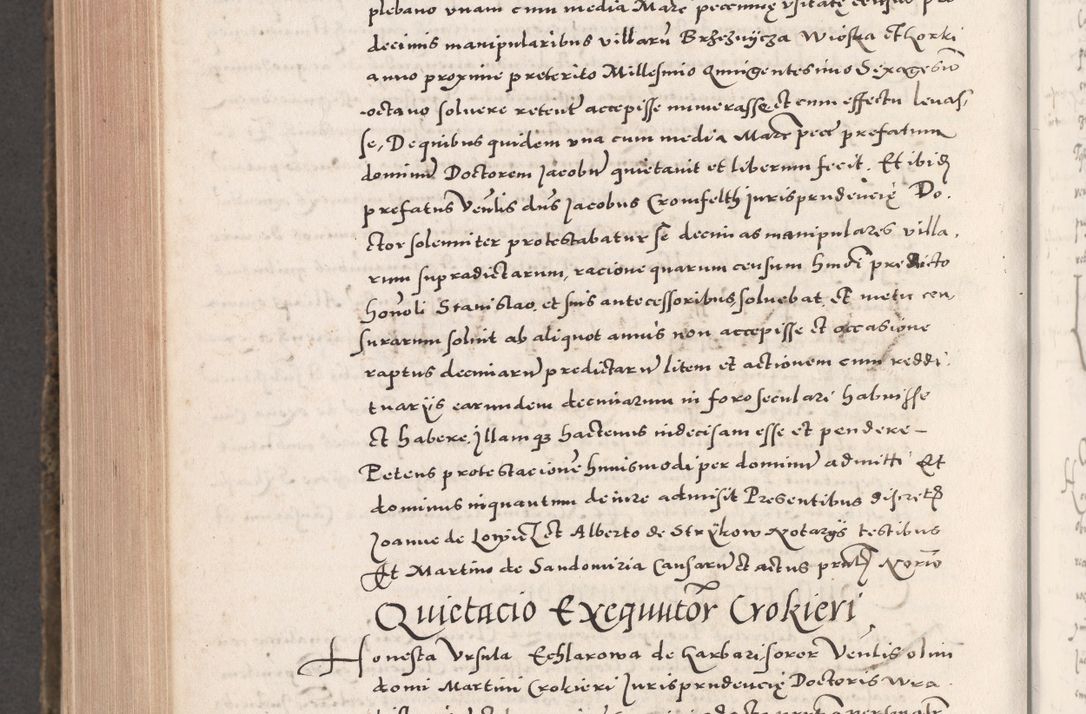 plebano unam cum media Marc pecunię usitatę census pro
decimis manipularibus villarũ Brzeznycza Wioska et Horki
anno proxime preterito Millesimo Quingentesimo Sexagesiõ
octavo solvere retent accepisse numerasseq et cum effectu levas,
se, De quibus quidem una cum media Marc pecc prefatum
dominũ Doctorem Jacobũ quietavit et liberum fecit. Et ibid
prefatus Venlis dns Jacobus Cromfelth jurisprudencię Do,
ctor solenniter protestabatur se decimas manipulares villa,
rum supradictarum, racione quarum censum hmõi predicto
honoli Stanislao, et suis antecessoribus, solvebat, et metu cen,
surarum solvit ab aliquot annis non accepisse et occasione
raptus decimarũ predictarũ litem et actionem cum reddi,
tuarÿs earundem decimarum in foro seculari habuisse
et habere, Jllamq hactenus indecisam esse et pendere –
Petens protestacionẽ huiusmodi per dominũ admitti Et
dominus inquantum de iure admisit Presentibus discretis
Joanne de Lowicz et Alberto de Strÿkow Notarÿs testibus
Et Martino de Sandomiria Causarũ et actus pntis Norio
Quietacio Exequutor Crokieri
Honesta Ursula Echlarowa de Garbari soror Venlis olim
domi Martini Crokieri Jurisprudencię Doctoris Wra